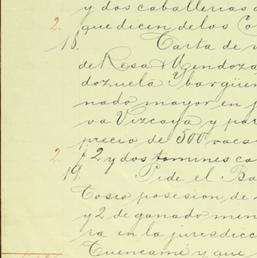 y dos caballerias
2. que dicen de los Co
18. Carta de
de Resa Mendoza
dozuela Ybargüen
nado mayor en
va Vizcaya y
precio de 500
2 f 2 y dos tomines
19. Pide el Ba
Cosio posesion de
y 2 de ganado men
ra en la jurisdicc
Cuencamé y que